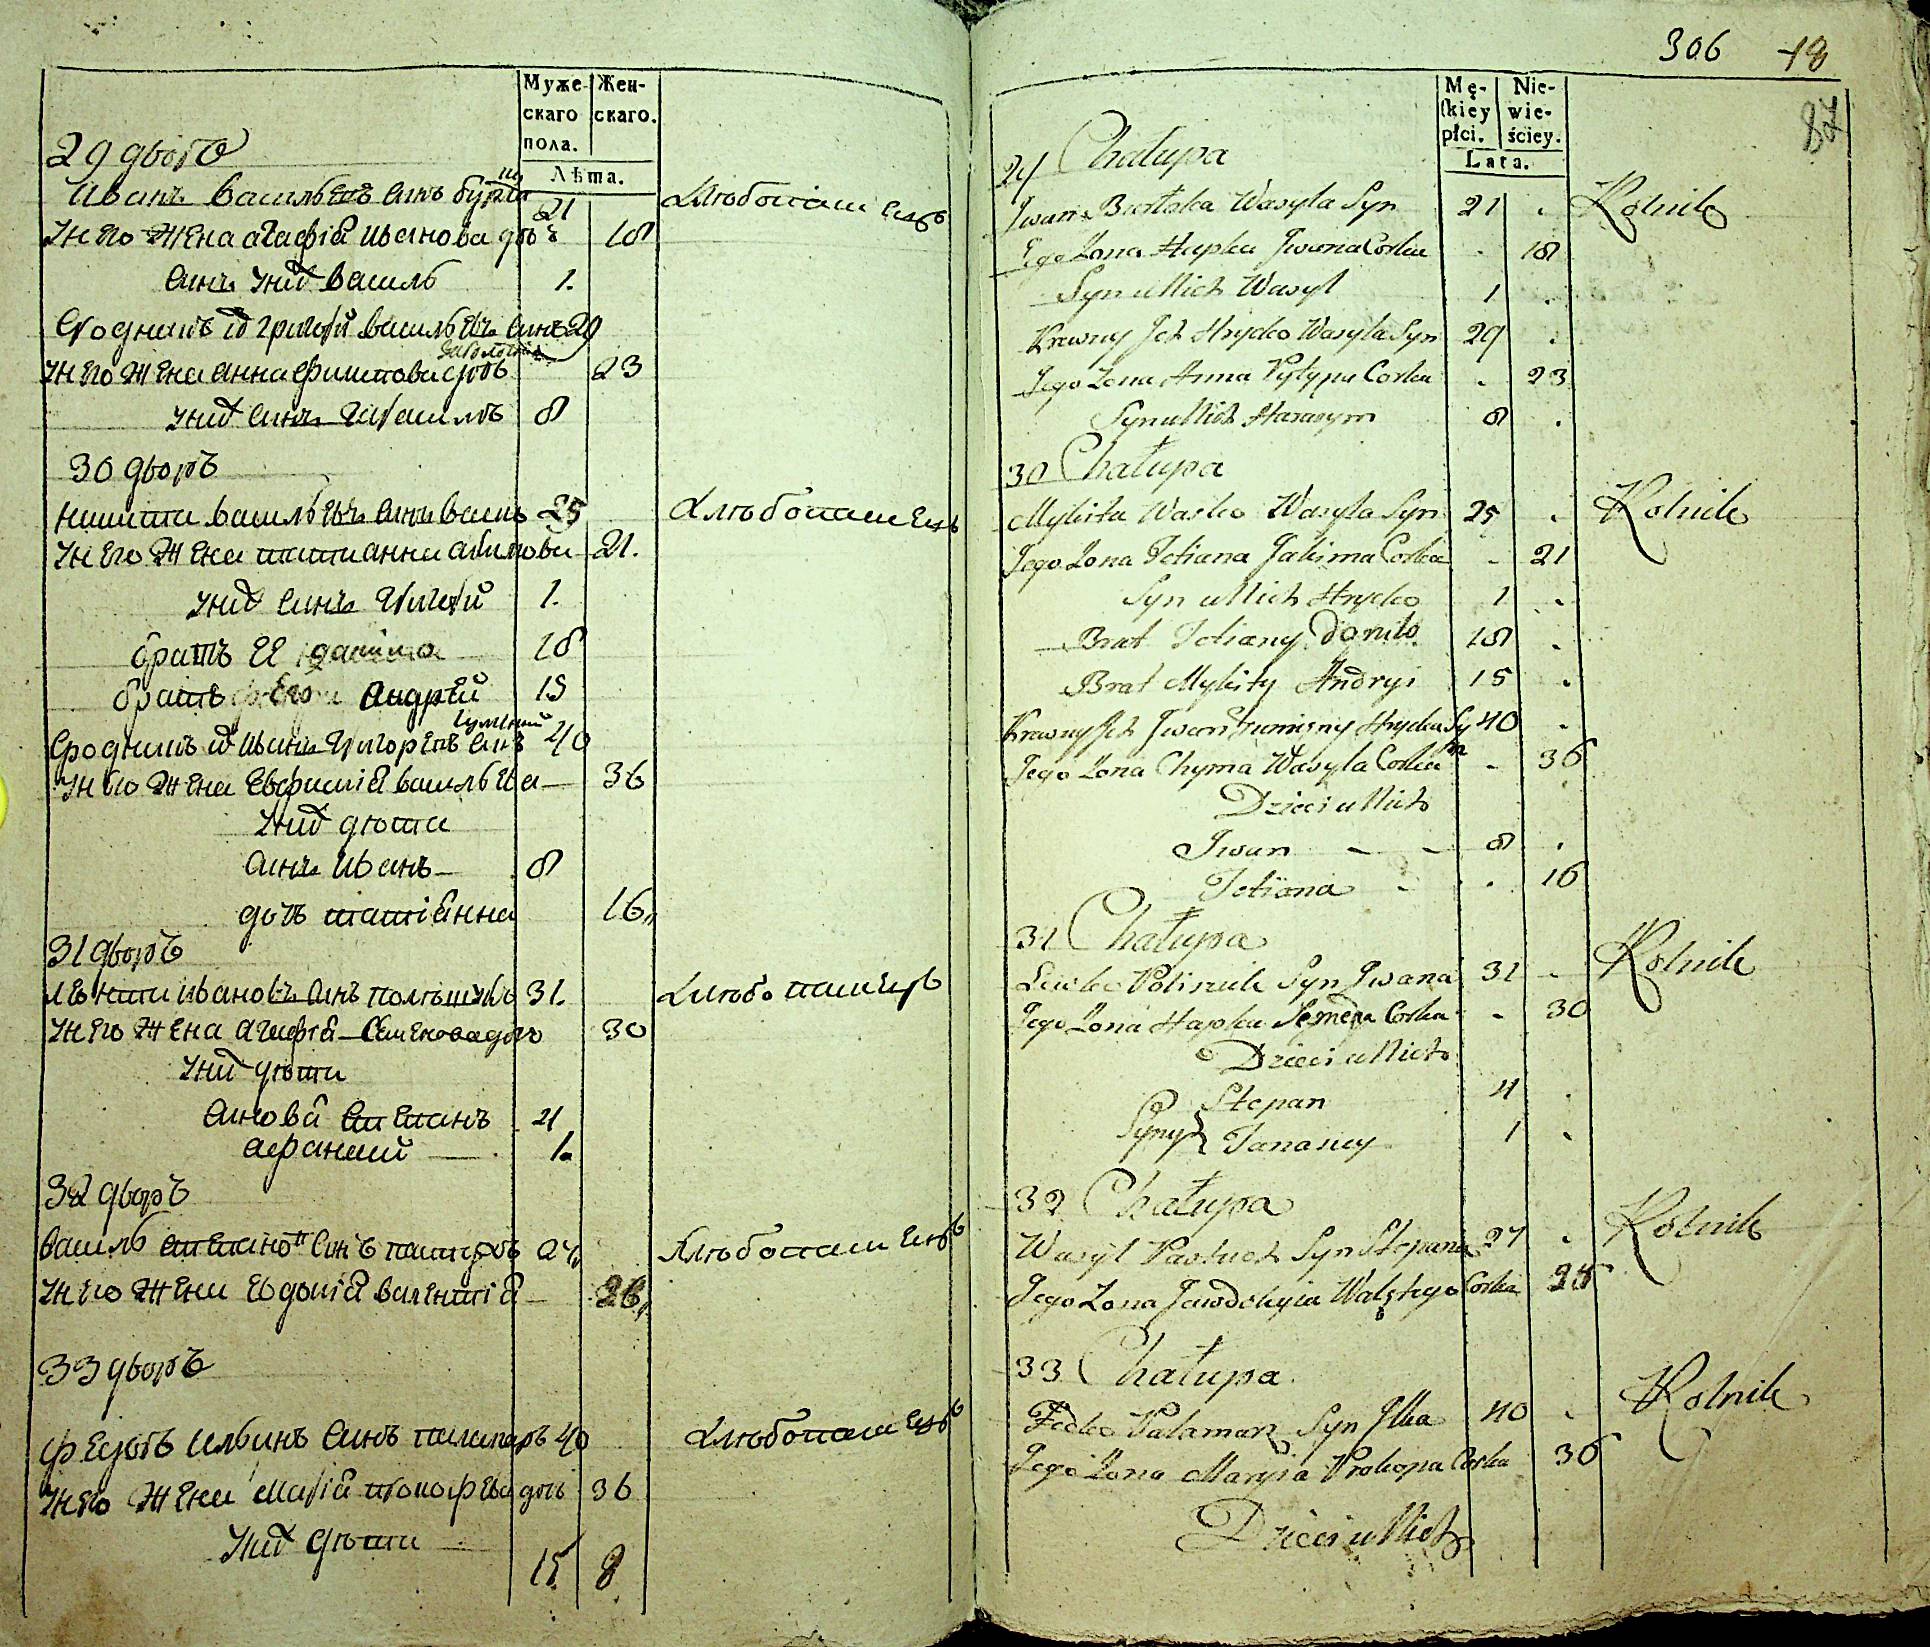 Муже-
скаго
пола.
Жен-
скаго.
Лѣта.
29 дворъ
Иванъ васильевъ синъ
21
хлюбопашецъ
У него жена агафіа иванова дочь 18
Синъ у них василь 1.
Сродникъ их григорий васильевъ синъ 29
У него жена анна филипова дочь 23
у них синъ 8
30 дворъ
никита васильевъ синъ васко 25 хлюбопашецъ
У него жена татианна акимова 21.
у них синъ григорий 1.
братъ ее данило 18
братъ его андрей 15
Сродникъ их иванъ григоревъ синъ 40
У него жена евфимиа васильева 36
у них дюти
синъ иванъ 8
дочь татіанна 16
31 дворъ
левко ивановъ синъ полѣщукъ 31. хлюбопашецъ
У него жена агафіа Семенова дочь 30
у них дюти
Синова Степанъ 4
афанасий 1.
32 дворъ
василь степановъ синъ 27 хлюбопашецъ
У него жена евдокіа 26
33 дворъ
федоръ ильинъ синъ паламаръ 40 хлюбопашецъ
У него жена мариа прокофева дочь 36
у них дюти
15 8
306 18
87
Mę-
ſkiey
płci.
Nie-
wie-
ściey.
Lata.
29 Chałupa
Jwan Wasyla Syn 21 . Rolnik
Jego Zona Hapka Jwana Corka . 18
Syn u Nich Wasyl 1 .
Krewny Jch Hryćko Wasyla Syn 29 .
Jego Zona Anna Pyłypa Corka . 23
Syn u Nich Harasym 8 .
30 Chałupa
Mykita Waśko Wasyla Syn 25 . Rolnik
Jego Zona Tetiana Jakima Corka - 21
Syn u Nich Hryćko 1 .
Brat Tetiany Daniło 18 .
Brat Mykity Andryi 15 .
Krewny Jch Jwan Humienny Hryćka Syn 40 .
Jego Zona Chyma Wasyla Corka - 36
Dzieci u Nich
Jwan - - 8 .
Tetiana - . 16
31 Chałupa
Lewko Poliszuk Syn Jwana 31 - Rolnik
Jego Zona Hapka Semena Corka - 30
Dzieci u Nich
Syny { Stepan 4 .
Tanasiey 1 .
32 Chałupa
Wasyl Pastuch Syn Stepana 27 . Rolnik
Jego Zona Jewdokyia Corka 25
33 Chałupa
Fedko Pałamarz Syn Jlka 40 . Rolnik
Jego Zona Maryia Prokopa Corka 36
Dzieci u Nich